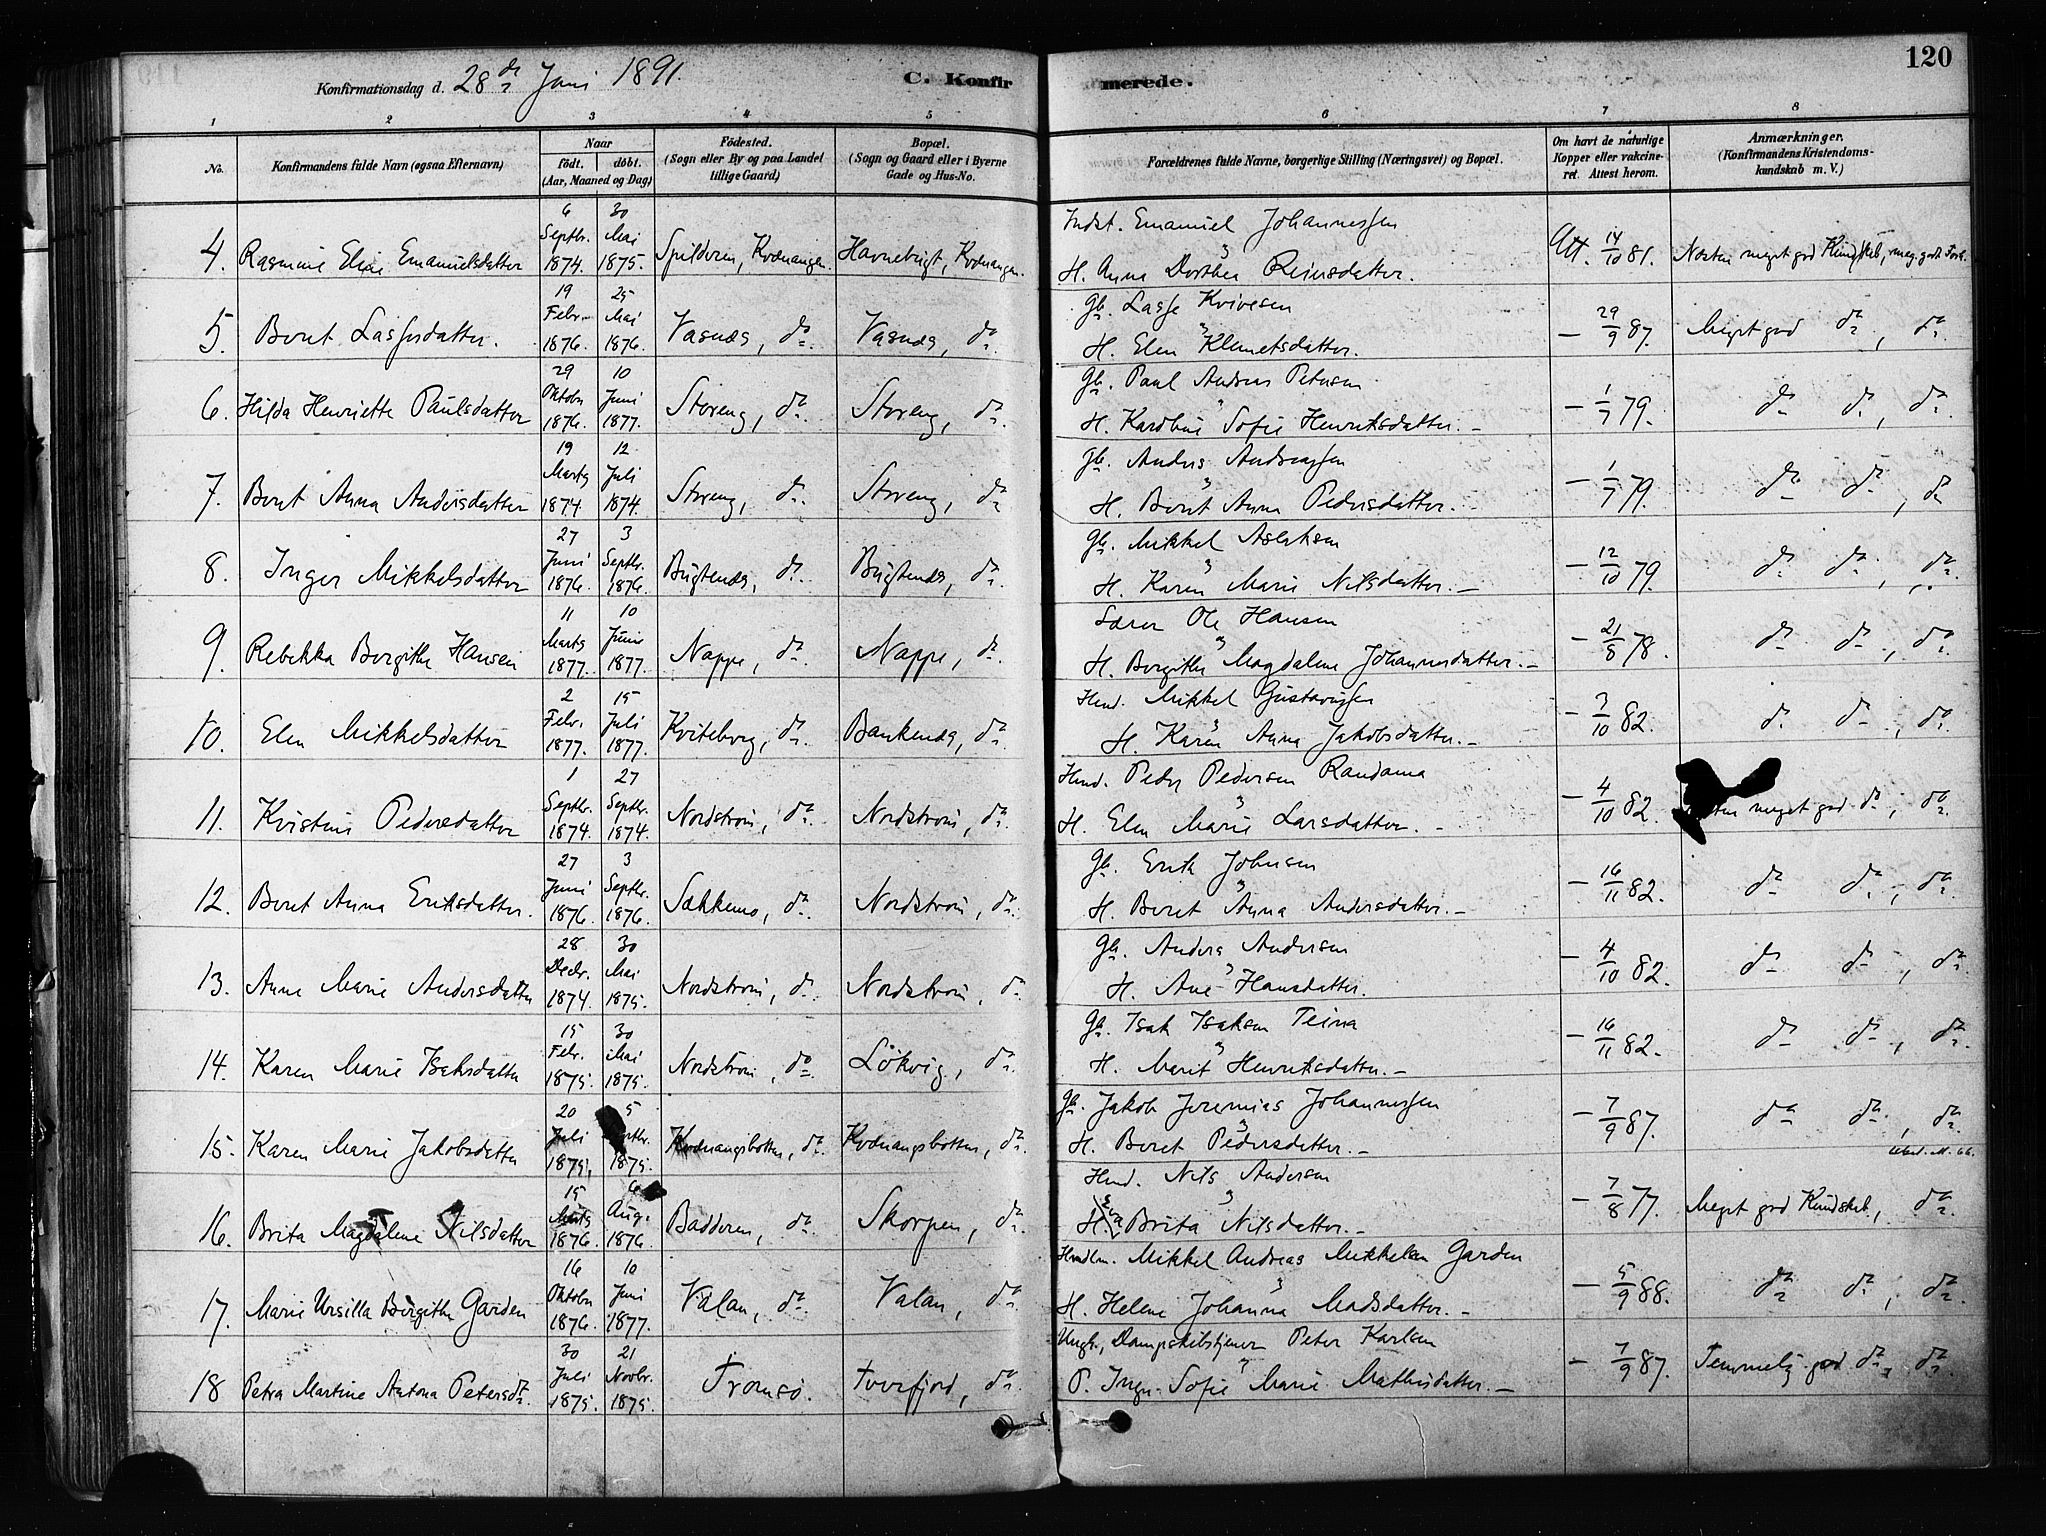 120
Konfirmationsdag d. 28de Juni 1891.
C. Konfirmerede.
1 2 3 4 5 6 7 8
No.
Konfirmandens fulde Navn (ogsaa Efternavn)
Naar
født. døbt.
(Aar, Maaned og Dag)
Fødested.
(Sogn eller By og paa Landet
tillige Gaard)
Bopæl.
(Sogn og Gaard eller i Byerne
Gade og Hus-No.
Forældrenes fulde Navne, borgerlige Stilling (Næringsvei) og Bopæl.
Om havt de naturlige
Kopper eller vakcine-
ret. Attest herom.
Anmærkninger.
(Konfirmandens Kristendoms-
kundskab m. V.)
4. Rasmine Elise Emanuelsdatter 6 Septbr. 1874. 30 Mai 1875. Spilderen, Kvænangen. Havnebugt, Kvænangen.
Indst. Emanuel Johannessen
H. Anna Dorthea Reinsdatter. Att. 14/10 81. Næsten meget god Kundskab, meg. godt Forh.
5. Berit Lassesdatter. 19 Febr. 1876. 25 Mai 1876. Vasnæs, do. Vasnæs, do.
Gb. Lasse Kvivesen
H. Elen Klemetsdatter. — 29/9 87. Meget god do, do.
6. Hilda Henriette Paulsdatter 29 Oktobr 1876. 10 Juni 1877. Storeng, do. Storeng, do.
Gb. Paul Andreas Petersen
H. Karoline Sofie Henriksdatter. — 1/7 79. do do, do.
7. Berit Anna Andersdatter 19 Marts 1874. 12 Juli 1874. Storeng, do. Storeng, do
Gb. Anders Andreassen
H. Berit Anna Pedersdatter. — 1/7 79. do do, do
8. Inger Mikkelsdatter 27 Juni 1876. 3 Septbr. 1876. Bugtenæs, do. Bugtenæs, do.
Gb. Mikkel Aslaksen
H. Karen Marie Nilsdatter. — 12/10 79. do do, do.
9. Rebekka Bergithe Hansen 11 Marts 1877. 10 Juni 1877. Nappe, do. Nappe, do.
Lærer Ole Hansen
H. Bergithe Magdalene Johannesdatter. — 21/8 78. do do, do.
10. Elen Mikkelsdatter 2 Febr. 1877. 15 Juli 1877. Kviteberg, do. Bankenæs, do.
Hmd. Mikkel Gustavsen
H. Karen Anna Jakobsdatter. — 3/10 82. do do, do.
11. Kristine Pedersdatter 1 Septbr. 1874. 27 Septbr. 1874. Nordstrøm, do. Nordstrøm, do.
Hmd. Peder Pedersen Randama
H. Elen Marie Larsdatter. — 4/10 82. meget god do, do.
12. Berit Anna Eriksdatter. 27 Juni 1876. 3 Septbr. 1876. Sækkemo, do. Nordstrøm, do.
Gb. Erik Johnsen
H. Beret Anna Andersdatter. — 16/11 82. do do, do.
13. Anne Marie Andersdatter 28 Decbr. 1874. 30 Mai 1875. Nordstrøm, do. Nordstrøm, do.
Gb. Anders Andersen
H. Ane Hansdatter. — 4/10 82. do do, do.
14. Karen Marie Isaksdatter 15 Febr. 1875. 30 Mai 1875. Nordstrøm, do. Løkvig, do.
Gb. Isak Isaksen Teina
H. Marit Henriksdatter. — 16/11 82. do do, do.
15. Karen Marie Jakobsdatter 20 Juli 1875. 5 Septbr. 1875. Kvænangsbotten, do. Kvænangsbotten, do.
Gb. Jakob Jeremias Johannessen
H. Beret Pedersdatter. — 7/9 87. do do, do.
16. Brita Magdalene Nilsdatter 15 Marts 1876. 6 Aug. 1876. Badderen, do. Skorpen, do.
Hmd. Nils Andersen
H. Eva Brita Nilsdatter. — 7/8 77. Meget god Kundskab, do.
17. Marie Ursilla Bergithe Garden 16 Oktobr 1876. 10 Juni 1877. Valan, do. Valan, do.
Handlm. Mikkel Andreas Mikkelsen Garden
H. Helene Johanna Madsdatter. — 5/9 88. do do, do.
18 Petra Martine Antona Petersdr. 30 Juli 1875. 21 Novbr. 1875. Tromsø. Tverfjord, do.
Ungk. Dampskibstjener Peter Karlsen
P. Inger Sofie Marie Mathisdatter. — 7/9 87. Temmelig god do, do.